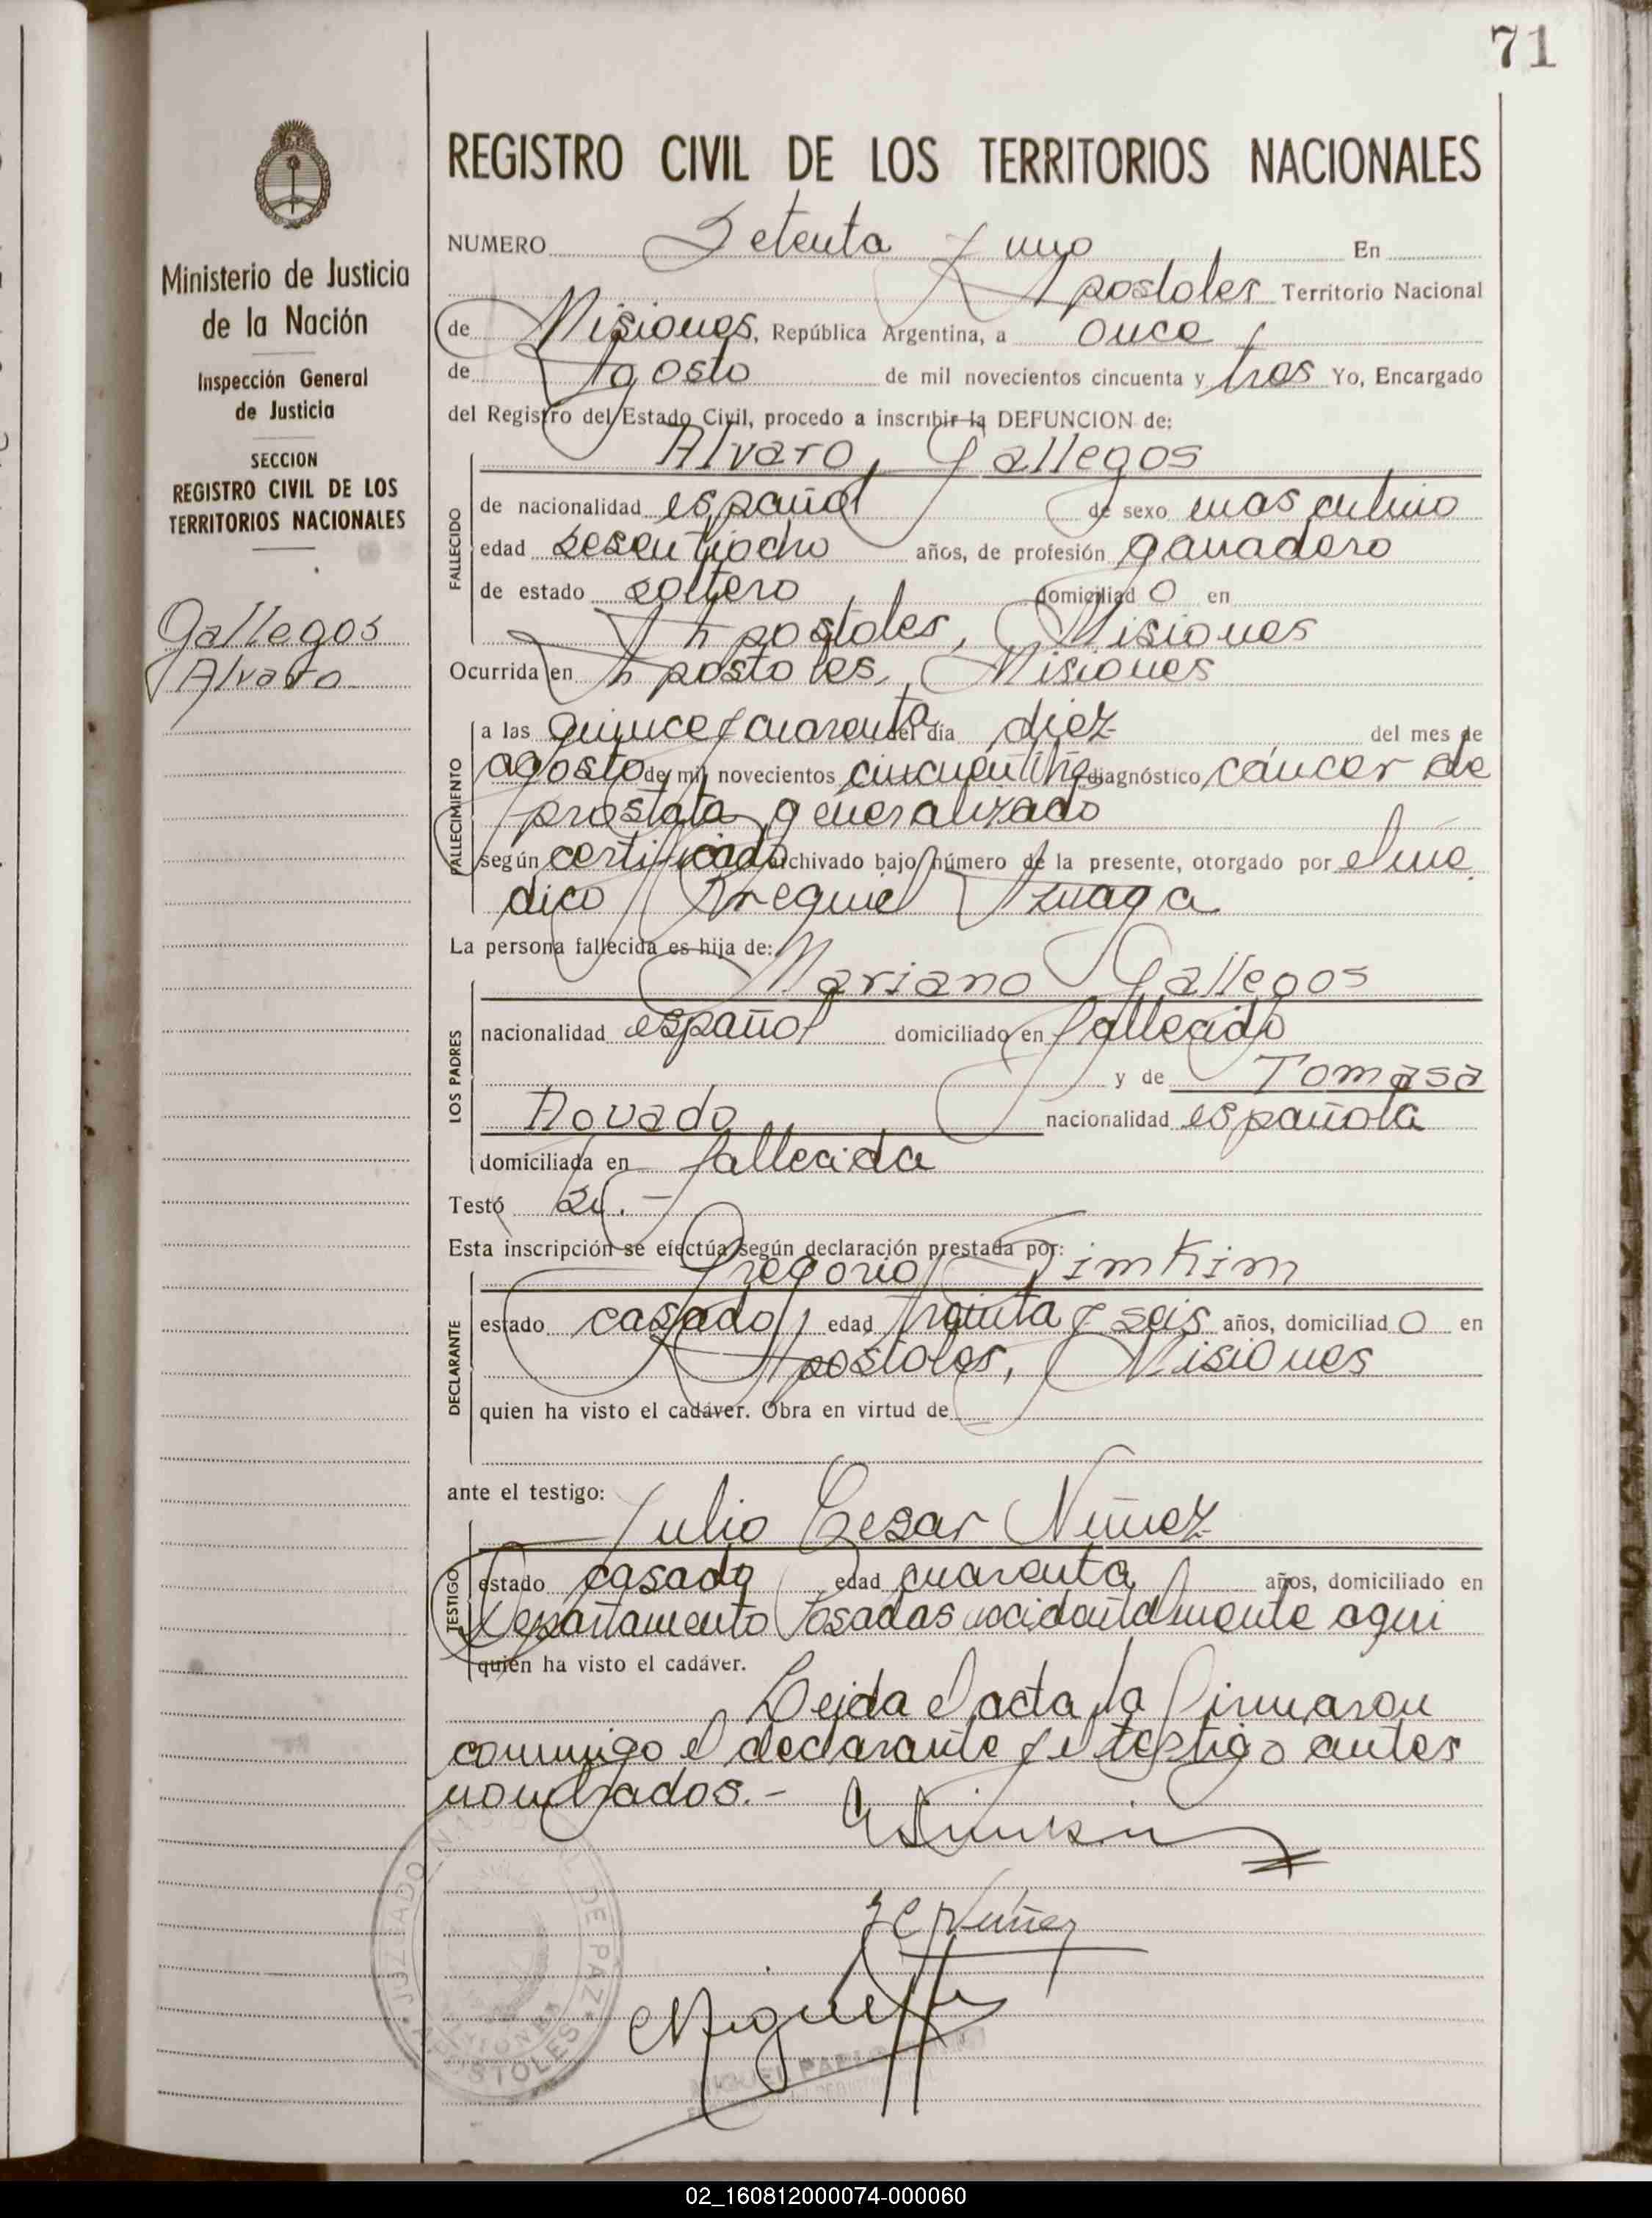 71
REGISTRO CIVIL DE LOS TERRITORIOS NACIONALES
Ministerio de Justicia
de la Nación
Inspección General
de Justicia
SECCION
REGISTRO CIVIL DE LOS
TERRITORIOS NACIONALES
Gallegos
Alvaro
NUMERO Setenta y uno En
Apostoles Territorio Nacional
de Misiones, República Argentina, a once
de Agosto de mil novecientos cincuenta y tres Yo, Encargado
del Registro del Estado Civil, procedo a inscribir la DEFUNCION de:
Alvaro Gallegos
FALLECIDO
de nacionalidad español de sexo masculino
edad sesentiocho años, de profesión ganadero
de estado soltero domiciliado en
Apostoles, Misiones
Ocurrida en Apostoles, Misiones
FALLECIMIENTO
a las quince y cuarenta del día diez del mes de
agosto de mil novecientos diagnóstico cáncer de
prostata generalizado
según certificado archivado bajo número de la presente, otorgado por el mé
dico Azuaga
La persona fallecida es hija de:
Mariano Gallegos
LOS PADRES
nacionalidad español domiciliado en fallecido
y de Tomasa
nacionalidad española
domiciliada en fallecida
Testó
Esta inscripción se efectúa según declaración prestada por:
Gregorio Simkim
DECLARANTE
estado casado, edad treinta y seis años, domiciliado en
Apostoles, Misiones
quien ha visto el cadáver. Obra en virtud de
ante el testigo:
Julio Cesar Núñez
TESTIGO
estado casado edad cuarenta años, domiciliado en
Departamento Posadas accidentalmente aqui
quien ha visto el cadáver.
Leida el acta, la firmaron
conmigo el declarante y el testigo antes
nombrados.-
J C Núñez
JUZGADO DE PAZ
MISIONES
APOSTOLES
MIGUEL PABLO
02_160812000074-000060